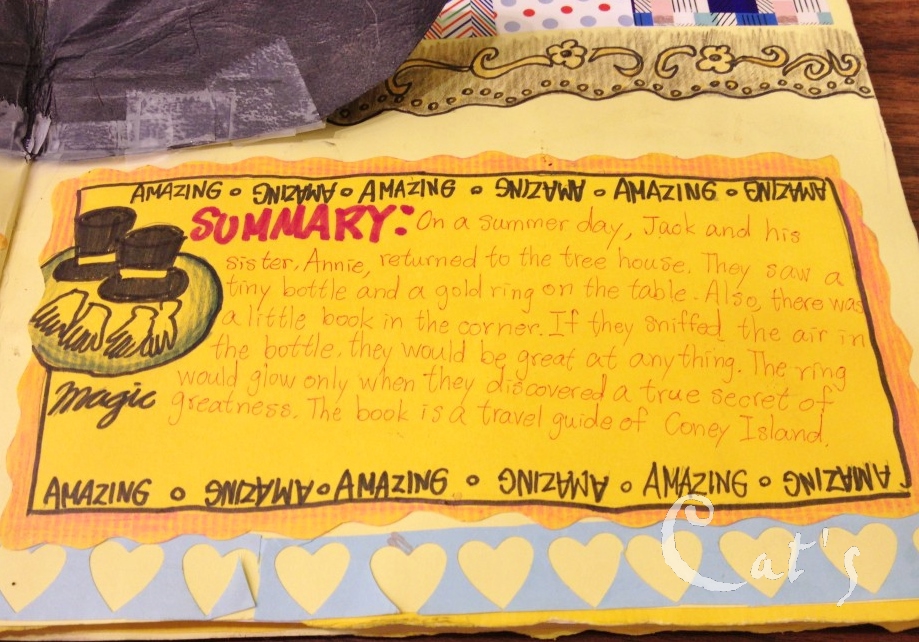 AMAZING o AMAZING o AMAZING o AMAZING o AMAZING o AMAZING
SUMMARY: On a summer day, Jack and his
sister, Annie, returned to the tree house. They saw a
tiny bottle and a gold ring on the table. Also, there was
a little book in the corner. If they sniffed the air in
the bottle, they would be great at anything. The ring
would glow only when they discovered a true secret of
greatness. The book is a travel guide of Coney Island.
Magic
AMAZING o AMAZING o AMAZING o AMAZING o AMAZING o AMAZING
Cat's